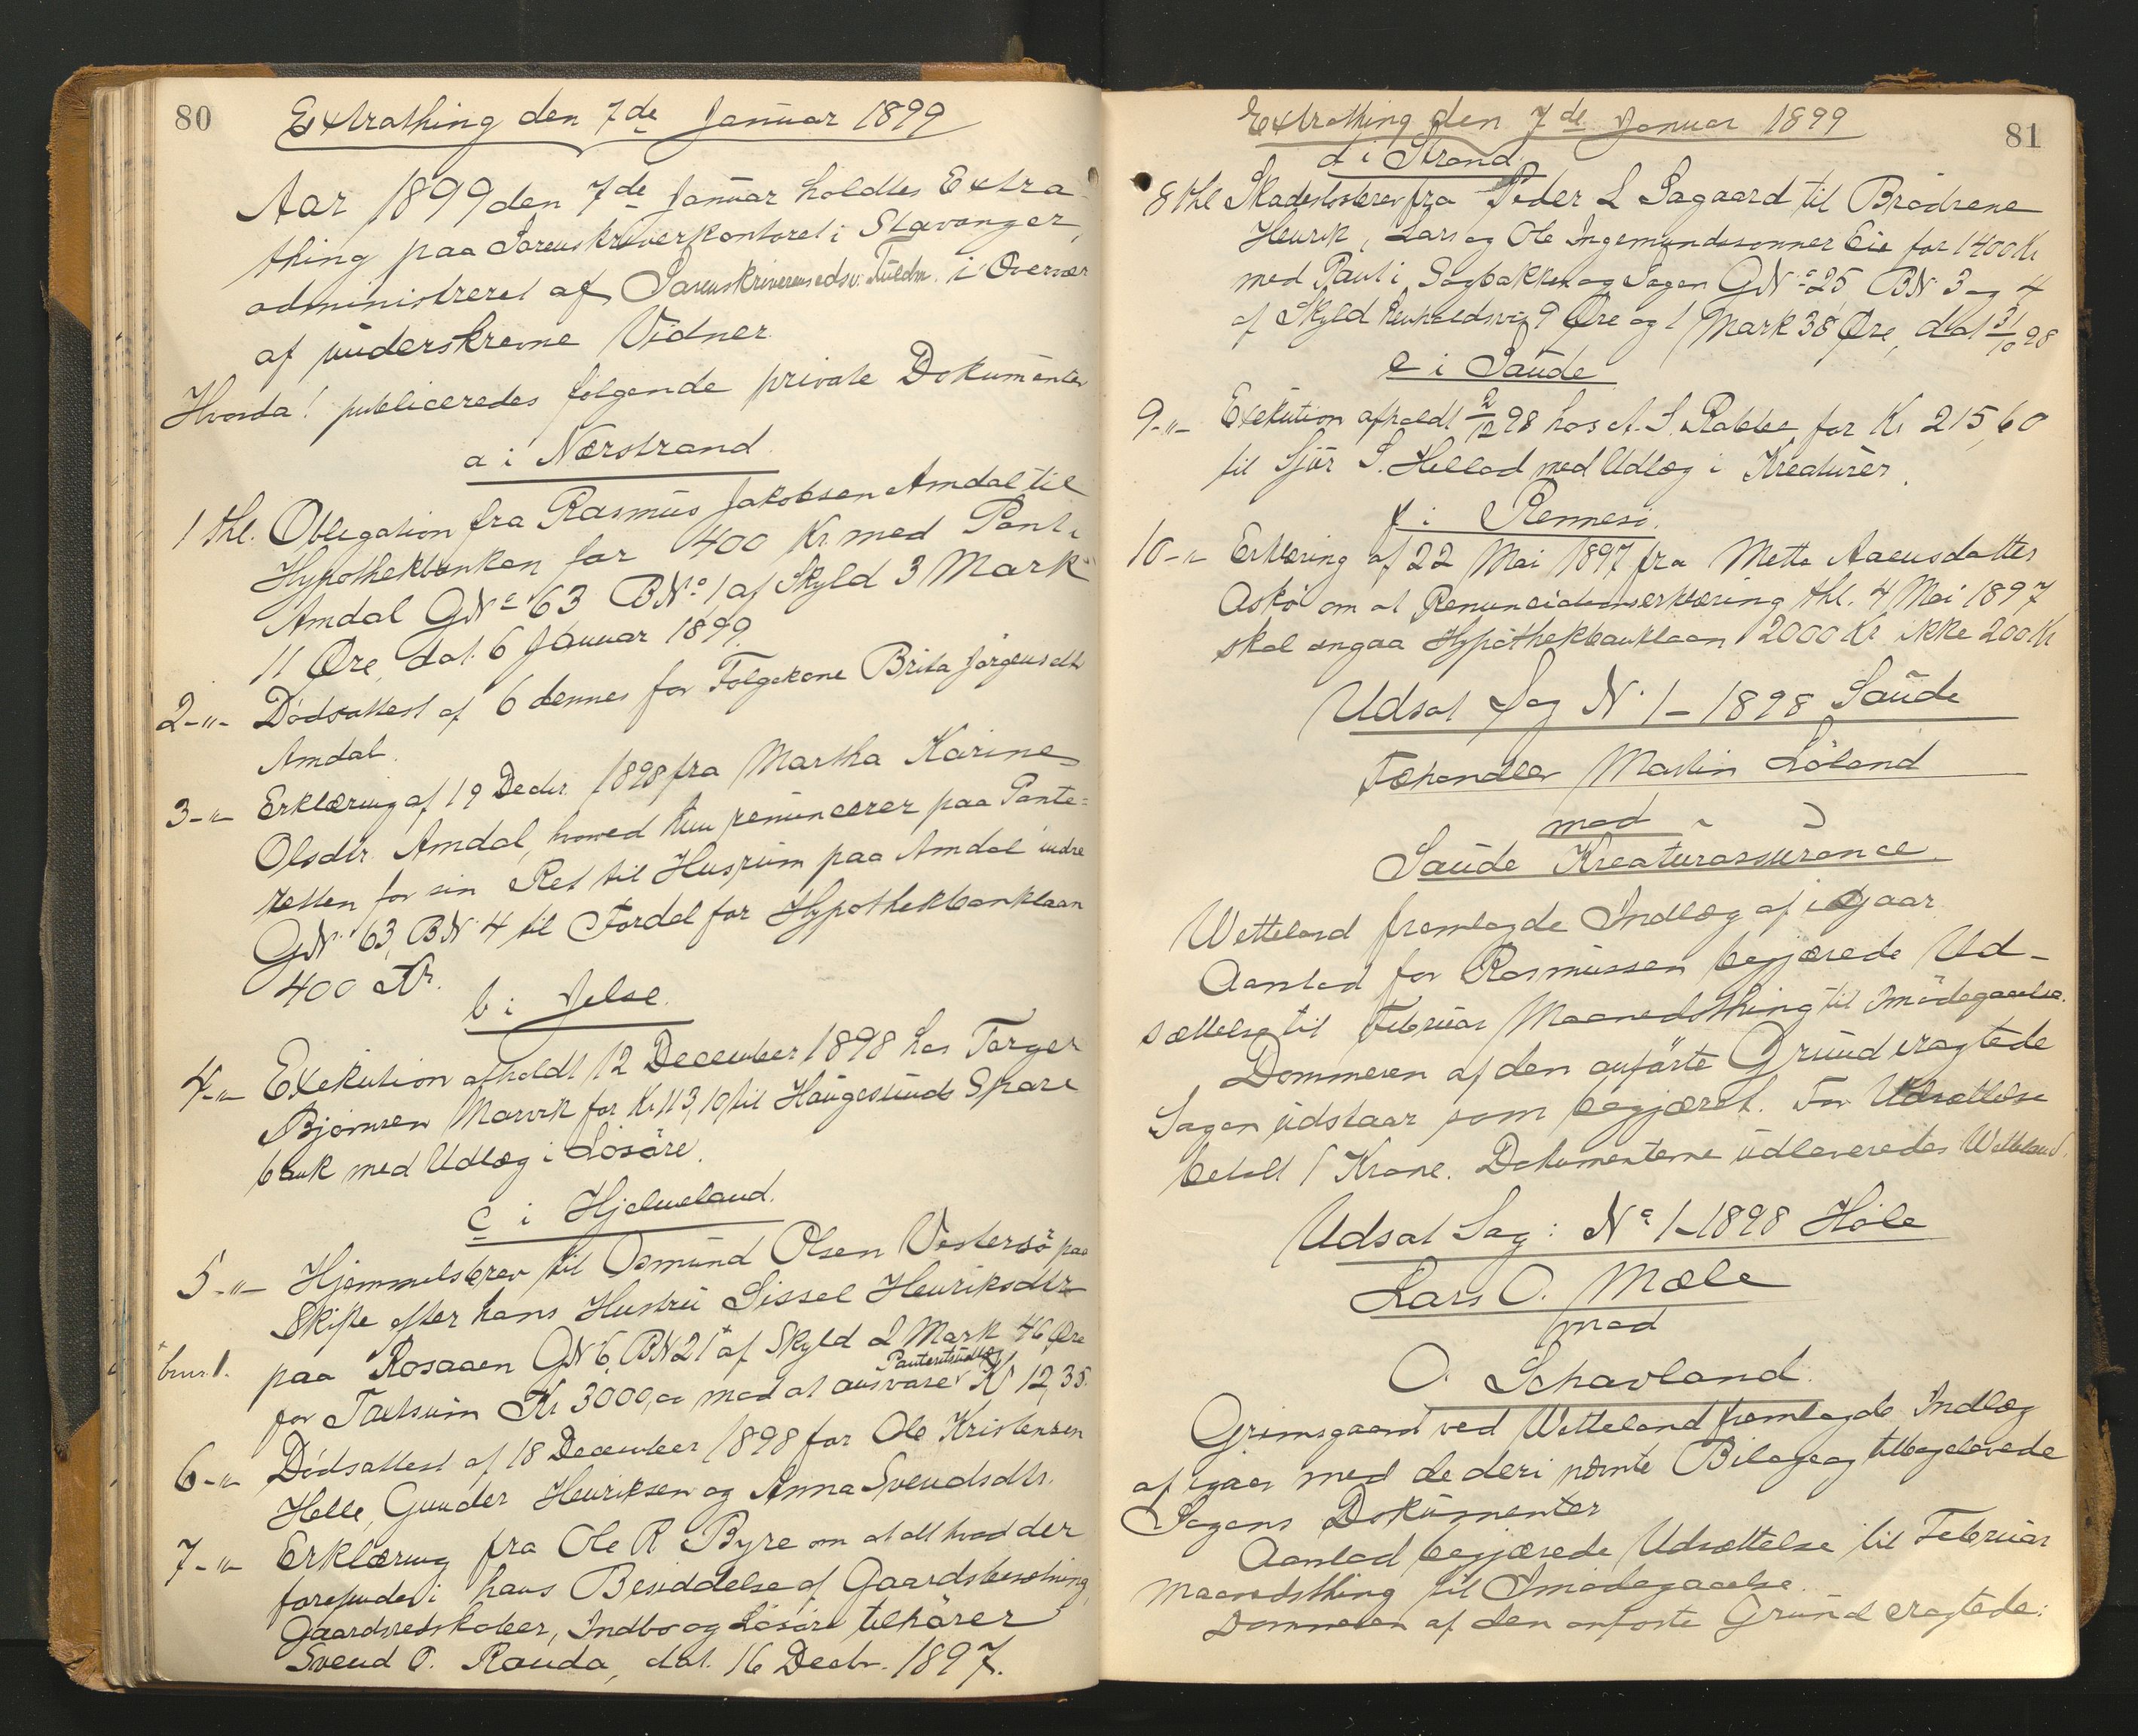 80
Extrathing den 7de Januar 1899
Aar 1899 den 7de Januar holdtes Extra
thing paa Sorenskriverkontoret i Stavanger,
administreret af Sorenskriverens edsv. Fuldm. i Overvær
af underskrevne Vidner.
Hvorda! publiceredes følgende private Dokumenter
a i Nærstrand.
1 thl. Obligation fra Rasmus Jakobsen Amdal til
Hypothekbanken for 400 Kr. med Pant i
Amdal GNo 63 BNo 1 af Skyld 3 Mark
11 Øre, dat. 6 Januar 1899.
2-"- Dødsattest af 6 dennes for Følgekone Brita Jørgensdtr
Amdal.
3-"- Erklæring af 19 Decbr. 1898 fra Martha Karine
Olsdtr. Amdal, hvorved hun renuncerer paa Pante-
retten for sin Ret til Husrum paa Amdal indre
GN 63, BN 4 til Fordel for Hypothekbanklaan
400 Kr.
b i Jelse.
4-"- Exekution afholdt 12 December 1898 hos Torger
Bjørnsen Marvik for Kr 113,10 til Haugesunds Spare
bank med Udlæg i Løsøre.
c i Hjelmeland.
5-"- Hjemmelsbrev til Osmund Olsen Vestersø paa
Skifte efter hans Hustru Sissel Henriksdtr
paa Rosaaen GN 6, BN 21* af Skyld 2 Mark 46 Øre
* brns. 1.
for Taxtsum Kr 3000,00 mod at ansvare Panteretsudlæg Kr 12,35.
6-"- Dødsattest af 18 December 1898 for Ole Kristensen
Helle, Gunder Henriksen og Anna Svendsdtr.
7-"- Erklæring fra Ole R Byre om at alt hvad der
forefindes i hans Besiddelse af Gaardsbesætning,
Gaardsredskaber, Indbo og Løsøre tilhører
Svend O. Randa, dat. 16 Decbr. 1897.
81
Extrathing den 7de Januar 1899
d i Strand.
8 thl Skadesløsbrev fra Peder L Sagaard til Brødrene
Henrik, Lars og Ole Ingemundssønner Eie for 1400 Kr
med Pant i Sagbakken og Sagen GNo 25, BN 3 og 4
af Skyld henholdsvis 9 Øre og 1 Mark 38 Øre, dat 31/10 98
e i Saude
9-"- Exekution afholdt 2/12 98 hos A. S. Rabbe for Kr 215,60
til Sjur S. Helland med Udlæg i Kreaturer.
f i Rennesø.
10-"- Erklæring af 22 Mai 1897 fra Mette Aanensdatter
Askø om at Renunciationserklæring thl. 4 Mai 1897
skal angaa Hypothekbanklaan 2000 Kr ikke 200 Kr
Udsat Sag N 1 - 1898 Saude
Fæhandler Martin Løland
mod
Saude Kreaturassurance.
Wetteland fremlagde Indlæg af igaar
Aanstad for Rasmussen begjærede Ud-
sættelse til Februar Maanedsthing til Imødegaaelse.
Dommeren af den anførte Grund eragtede
Sagen udstaar som begjæret. For Udsættelse
betalt 1 Krone. Dokumenterne udleveredes Wetteland.
Udsat Sag: No 1-1898 Høle
Lars O. Mæle
mod
O. Schavland.
Grimsgaard ved Wetteland fremlagde Indlæg
af igaar med de deri nævnte Bilage og tilbageleverede
Sagens Dokumenter
Aanstad begjærede Udsættelse til Februar
Maanedsthing til Imødegaaelse.
Dommeren af den anførte Grund eragtede: